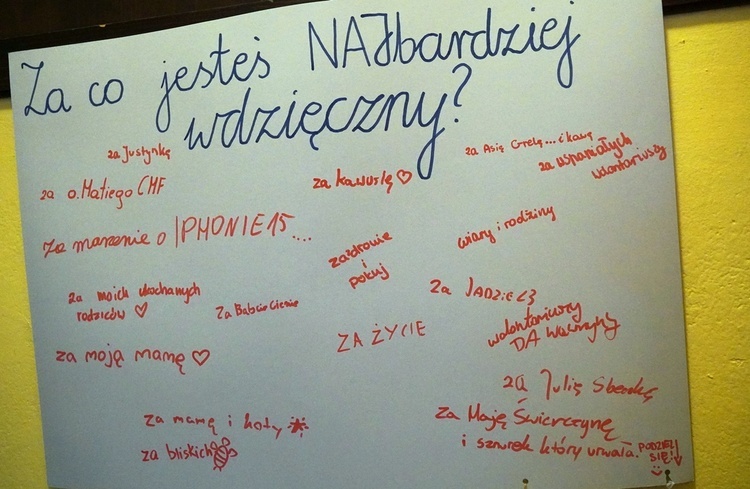 Za co jesteś NAJbardziej
wdzięczny?
za Justynkę
za o. Matiego CMF
za kawusię ♡
za Asię Gretę... i kawę
za wspaniałych
wolontariuszy
Za marzenie o IPHONIE 15....
za zdrowie
i
pokój
wiary i rodziny
za moich ukochanych
rodziców ♡
Za Babcię Cienię
Za JADZIĘ <3
wolontariuszy
DA Wawrzyny
za moją mamę ♡
ZA ŻYCIE
za Julię
za mamę i koty
za bliskich
Za Maję Świerczynę
i sznurek który urwała.
PODZIEL
SIĘ!